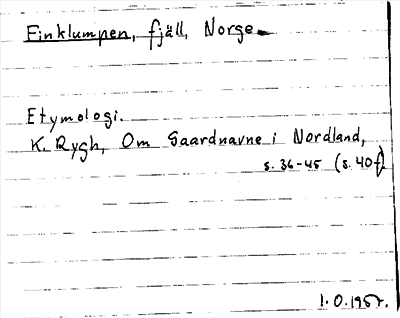 Finklumpen, fjäll, Norge.
Etymologi.
K. Rygh, Om Gaardnavne i Nordland,
s. 36-45 (s. 40 f).